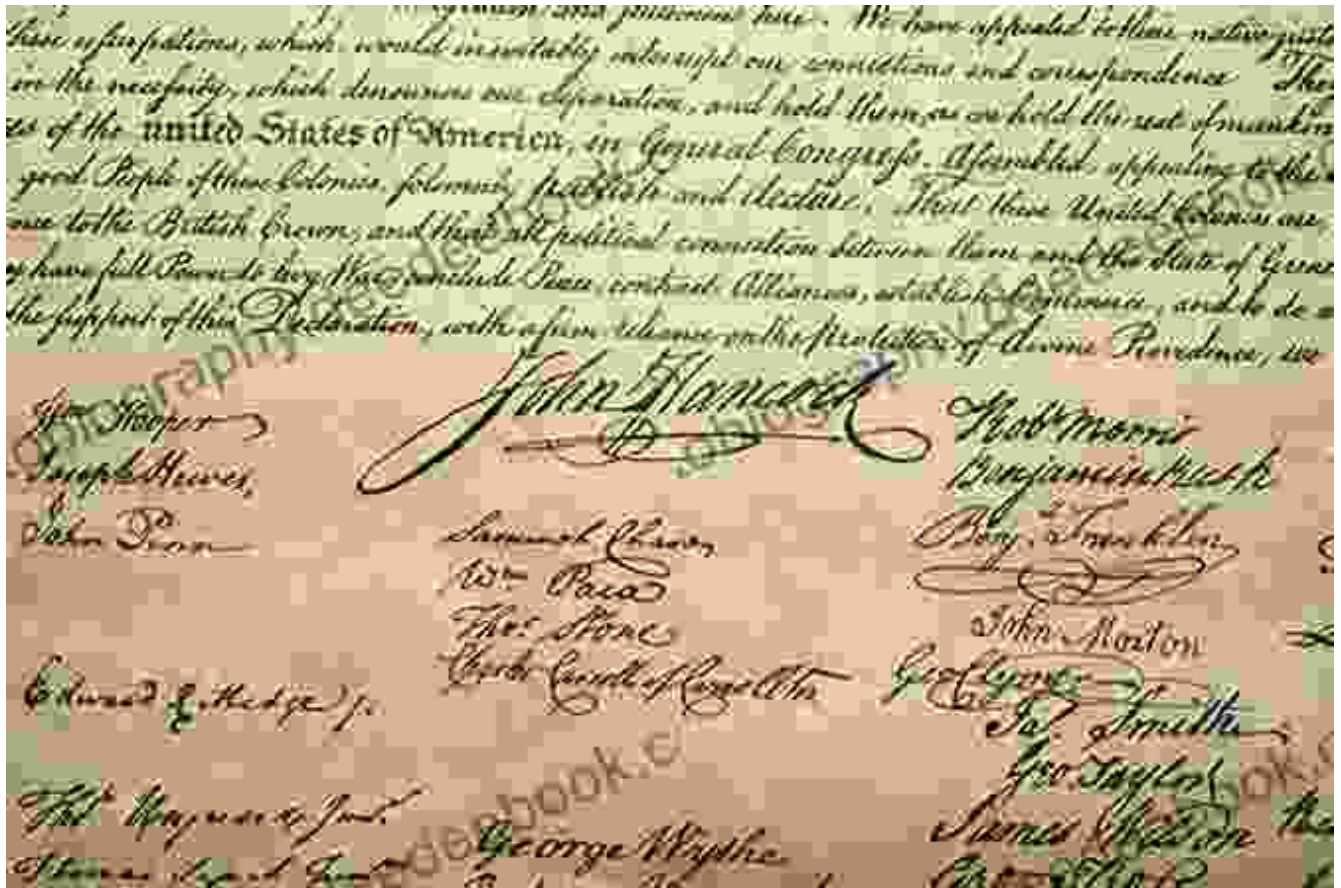 We have appealed to their native
these usurpations, which, would inevitably interrupt our connections and correspondence
in the necessity, which denounces our Separation, and hold them, as we hold the rest of
of the united States of America, in General Congress, Assembled, appealing to the
good People of these Colonies, solemnly publish and declare, That these United Colonies are
to the British Crown, and that all political connection between them and the State of
have full Power to levy War, conclude Peace, contract Alliances, establish Commerce, and to do
the support of this Declaration, with a firm reliance on the protection of divine Providence, we
John Hancock
Wm Hooper
Joseph Hewes,
John Penn
Edward Rutledge jr.
Thos Heyward Junr.
Thomas Lynch Junr
Samuel Chase
Wm Paca
Thos Stone
Charles Carroll of Carrollton
George Wythe
Robt Morris
Benjamin Rush
Benj. Franklin
John Morton
Geo Clymer
Jas. Smith
Geo. Taylor
James Wilson